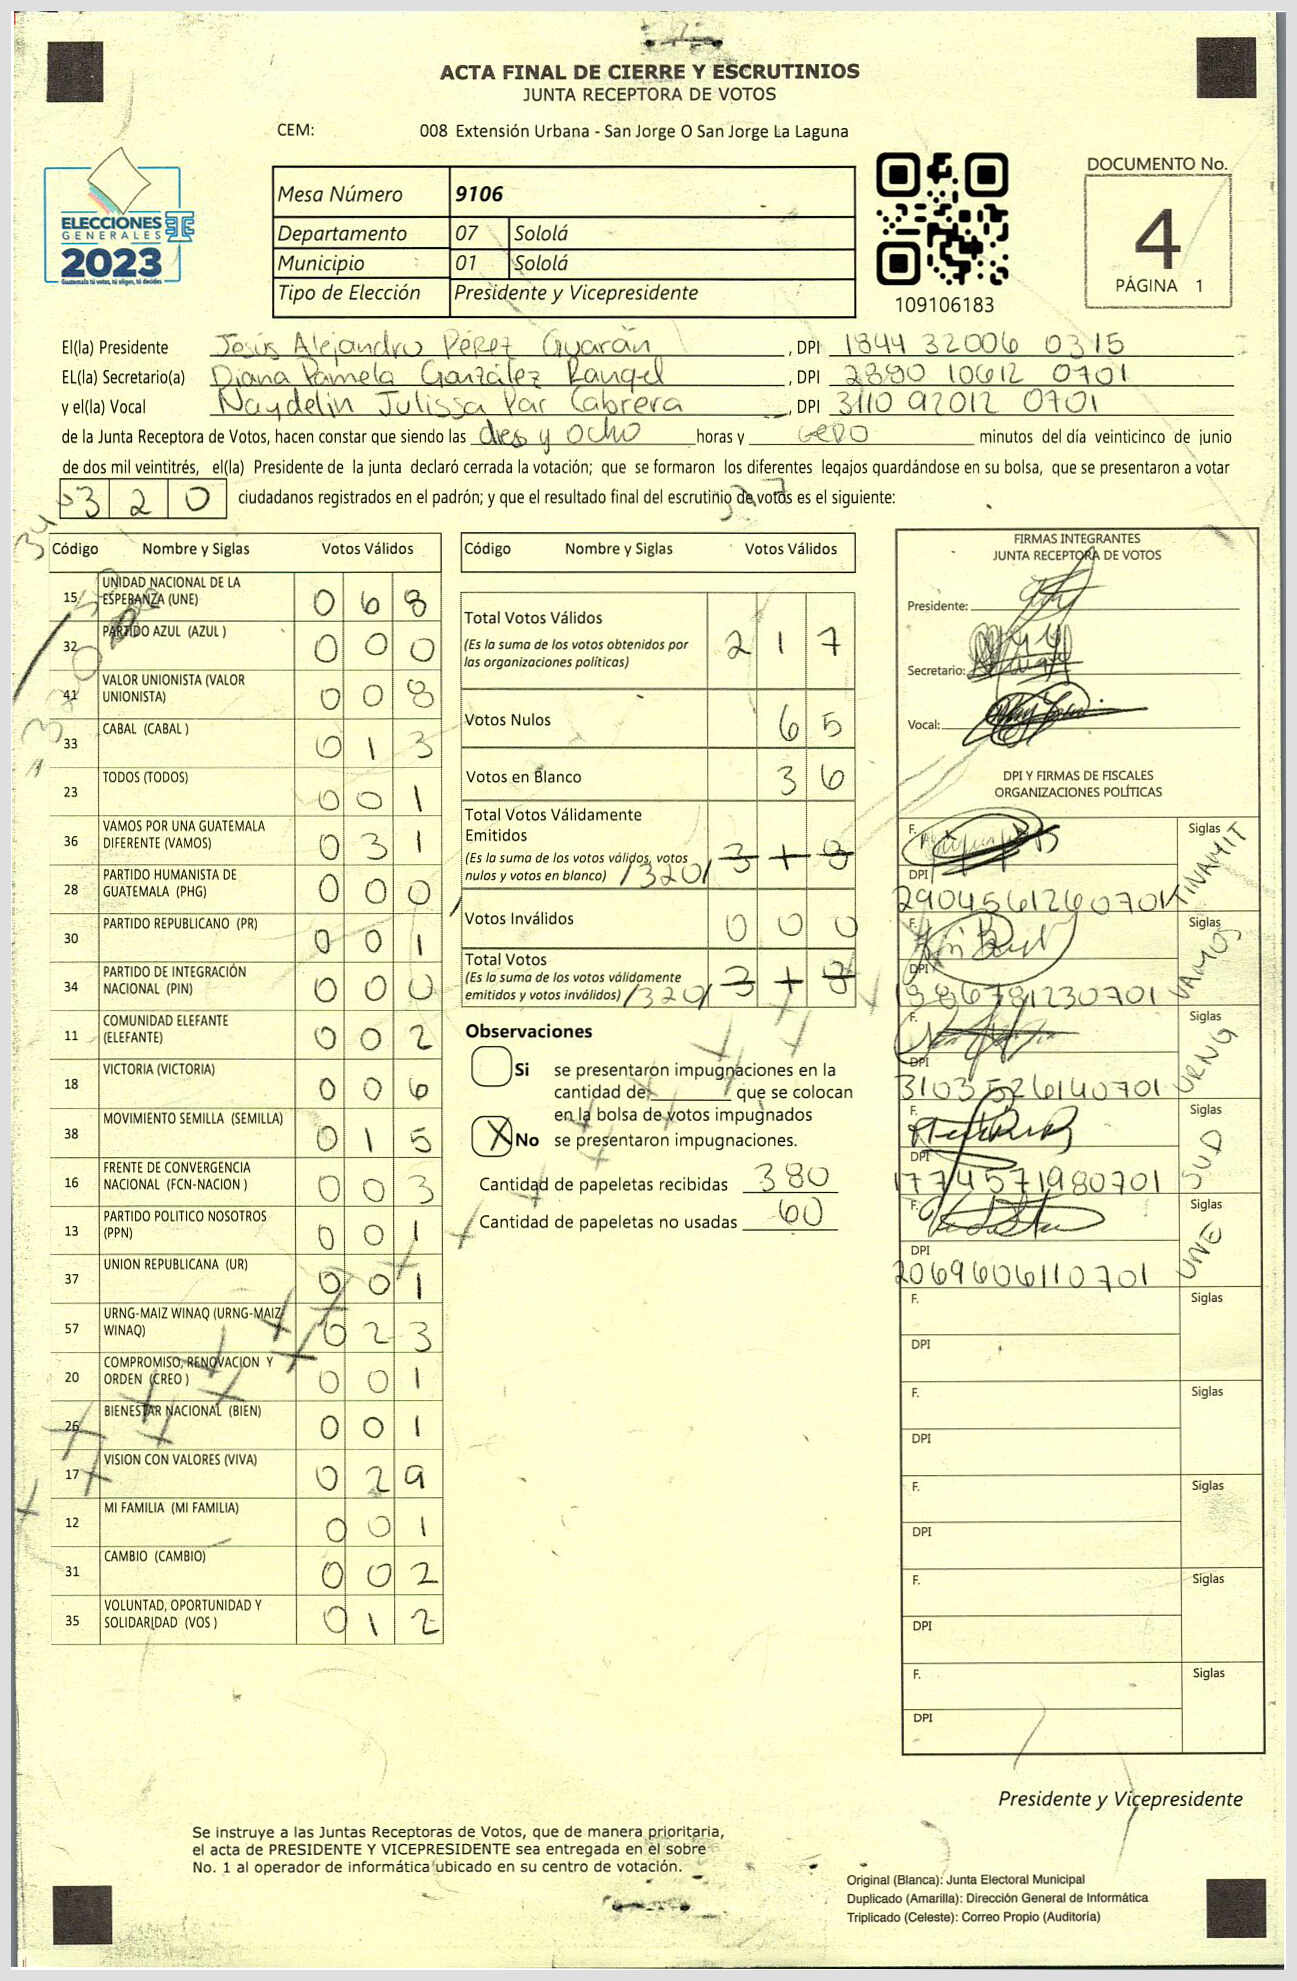 ACTA FINAL DE CIERRE Y ESCRUTINIOS
JUNTA RECEPTORA DE VOTOS
CEM: 008 Extensión Urbana - San Jorge O San Jorge La Laguna
ELECCIONES
GENERALES
2023
Guatemala tú votas, tú eliges, tú decides
Mesa Número 9106
Departamento 07 Sololá
Municipio 01 Sololá
Tipo de Elección Presidente y Vicepresidente
109106183
DOCUMENTO No.
4
PÁGINA 1
El(la) Presidente Jesús Alejandro Pérez Guarán, DPI 1844 32006 0315
EL(la) Secretario(a) Diana Pamela González Rangel, DPI 2880 10612 0701
y el(la) Vocal Naydelin Julissa Par Cabrera, DPI 3110 92012 0701
de la Junta Receptora de Votos, hacen constar que siendo las dies y ocho horas y cero minutos del día veinticinco de junio
de dos mil veintitrés, el(la) Presidente de la junta declaró cerrada la votación; que se formaron los diferentes legajos guardándose en su bolsa, que se presentaron a votar
320 ciudadanos registrados en el padrón; y que el resultado final del escrutinio de votos es el siguiente:
Código Nombre y Siglas Votos Válidos
15 UNIDAD NACIONAL DE LA ESPERANZA (UNE) 068
32 PARTIDO AZUL (AZUL ) 000
41 VALOR UNIONISTA (VALOR UNIONISTA) 008
33 CABAL (CABAL ) 013
23 TODOS (TODOS) 001
36 VAMOS POR UNA GUATEMALA DIFERENTE (VAMOS) 031
28 PARTIDO HUMANISTA DE GUATEMALA (PHG) 000
30 PARTIDO REPUBLICANO (PR) 001
34 PARTIDO DE INTEGRACIÓN NACIONAL (PIN) 000
11 COMUNIDAD ELEFANTE (ELEFANTE) 002
18 VICTORIA (VICTORIA) 006
38 MOVIMIENTO SEMILLA (SEMILLA) 015
16 FRENTE DE CONVERGENCIA NACIONAL (FCN-NACION ) 003
13 PARTIDO POLITICO NOSOTROS (PPN) 001
37 UNION REPUBLICANA (UR) 001
57 URNG-MAIZ WINAQ (URNG-MAIZ WINAQ) 023
20 COMPROMISO, RENOVACION Y ORDEN (CREO ) 001
26 BIENESTAR NACIONAL (BIEN) 001
17 VISION CON VALORES (VIVA) 029
12 MI FAMILIA (MI FAMILIA) 001
31 CAMBIO (CAMBIO) 002
35 VOLUNTAD, OPORTUNIDAD Y SOLIDARIDAD (VOS ) 012
Código Nombre y Siglas Votos Válidos
Total Votos Válidos 217
(Es la suma de los votos obtenidos por
las organizaciones políticas)
Votos Nulos 65
Votos en Blanco 36
Total Votos Válidamente
Emitidos
(Es la suma de los votos válidos, votos 318
nulos y votos en blanco) /320/
Votos Inválidos 000
Total Votos
(Es la suma de los votos válidamente 318
emitidos y votos inválidos) /320/
Observaciones
Si se presentaron impugnaciones en la
cantidad de: que se colocan
en la bolsa de votos impugnados
X No se presentaron impugnaciones.
Cantidad de papeletas recibidas 380
Cantidad de papeletas no usadas 60
FIRMAS INTEGRANTES
JUNTA RECEPTORA DE VOTOS
Presidente:
Secretario:
Vocal:
DPI Y FIRMAS DE FISCALES
ORGANIZACIONES POLÍTICAS
F. Siglas TINAMIT
DPI 2904561260701
F. Siglas VAMOS
DPI 1386781230701
F. Siglas URNG
DPI 3103526140701
F. Siglas SUD
DPI 1774571980701
F. Siglas UNE
DPI 2069606110701
F. Siglas
DPI
F. Siglas
DPI
F. Siglas
DPI
F. Siglas
DPI
F. Siglas
DPI
Presidente y Vicepresidente
Se instruye a las Juntas Receptoras de Votos, que de manera prioritaria,
el acta de PRESIDENTE Y VICEPRESIDENTE sea entregada en el sobre
No. 1 al operador de informática ubicado en su centro de votación.
Original (Blanca): Junta Electoral Municipal
Duplicado (Amarilla): Dirección General de Informática
Triplicado (Celeste): Correo Propio (Auditoría)